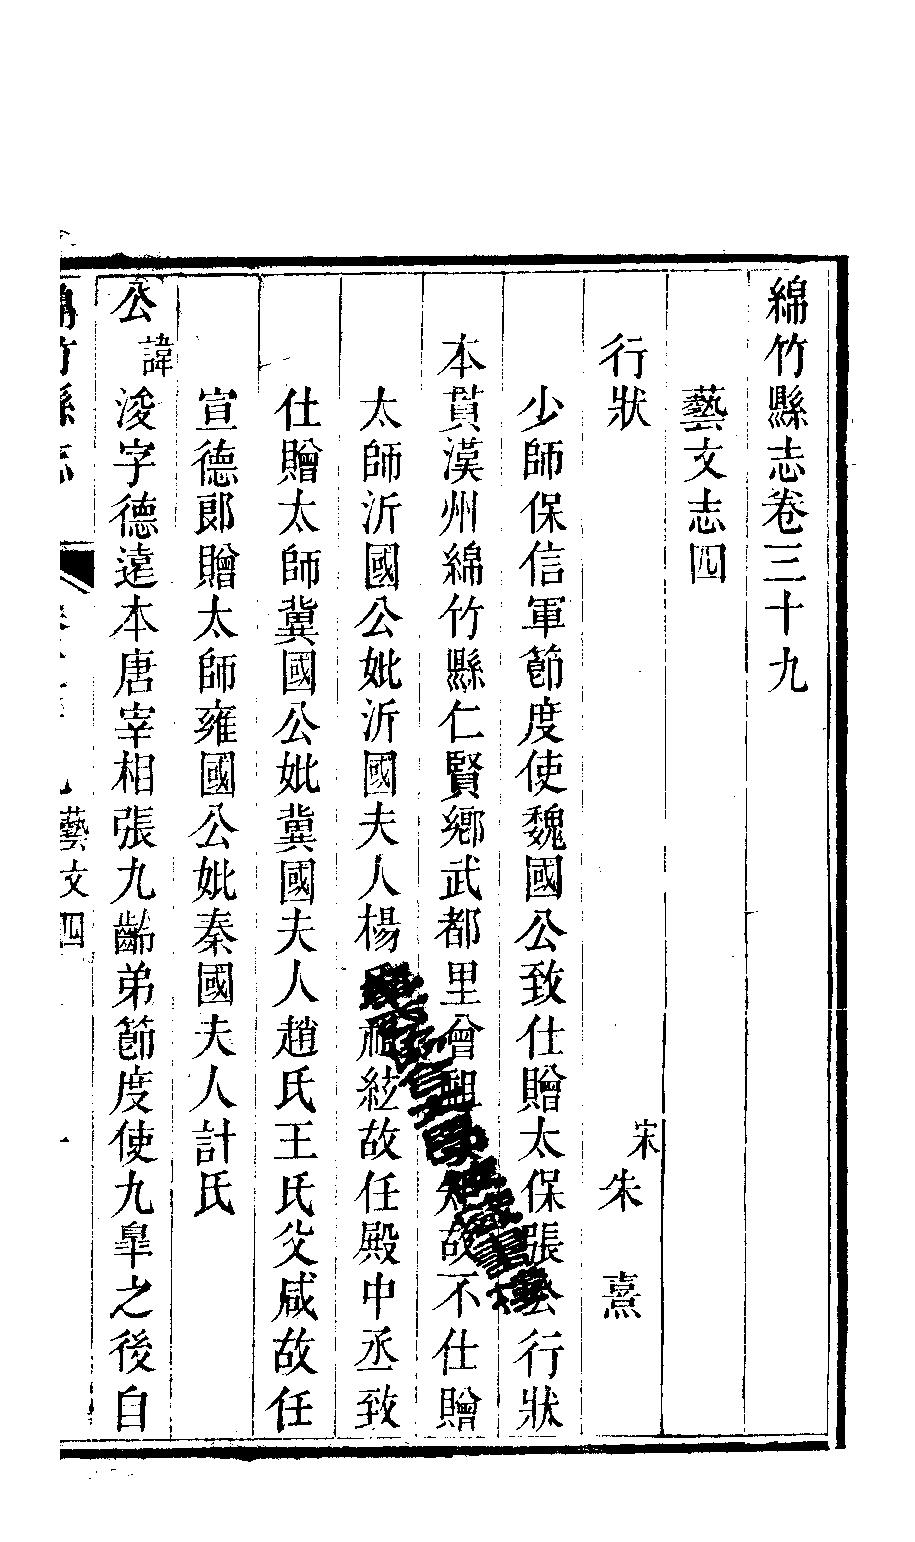 綿竹縣志卷三十九
藝文志四
行狀 宋朱熹
少師保信軍節度使魏國公致仕贈太保張公行狀
本貫漢州綿竹縣仁賢鄉武都里曾祖 故不仕贈
太師沂國公妣沂國夫人楊 祖絃故任殿中丞致
仕贈太師冀國公妣冀國夫人趙氏王氏父咸故任
宣德郎贈太師雍國公妣秦國夫人計氏
公諱浚字德遠本唐宰相張九齡弟節度使九皐之後自
綿竹縣志 藝文四